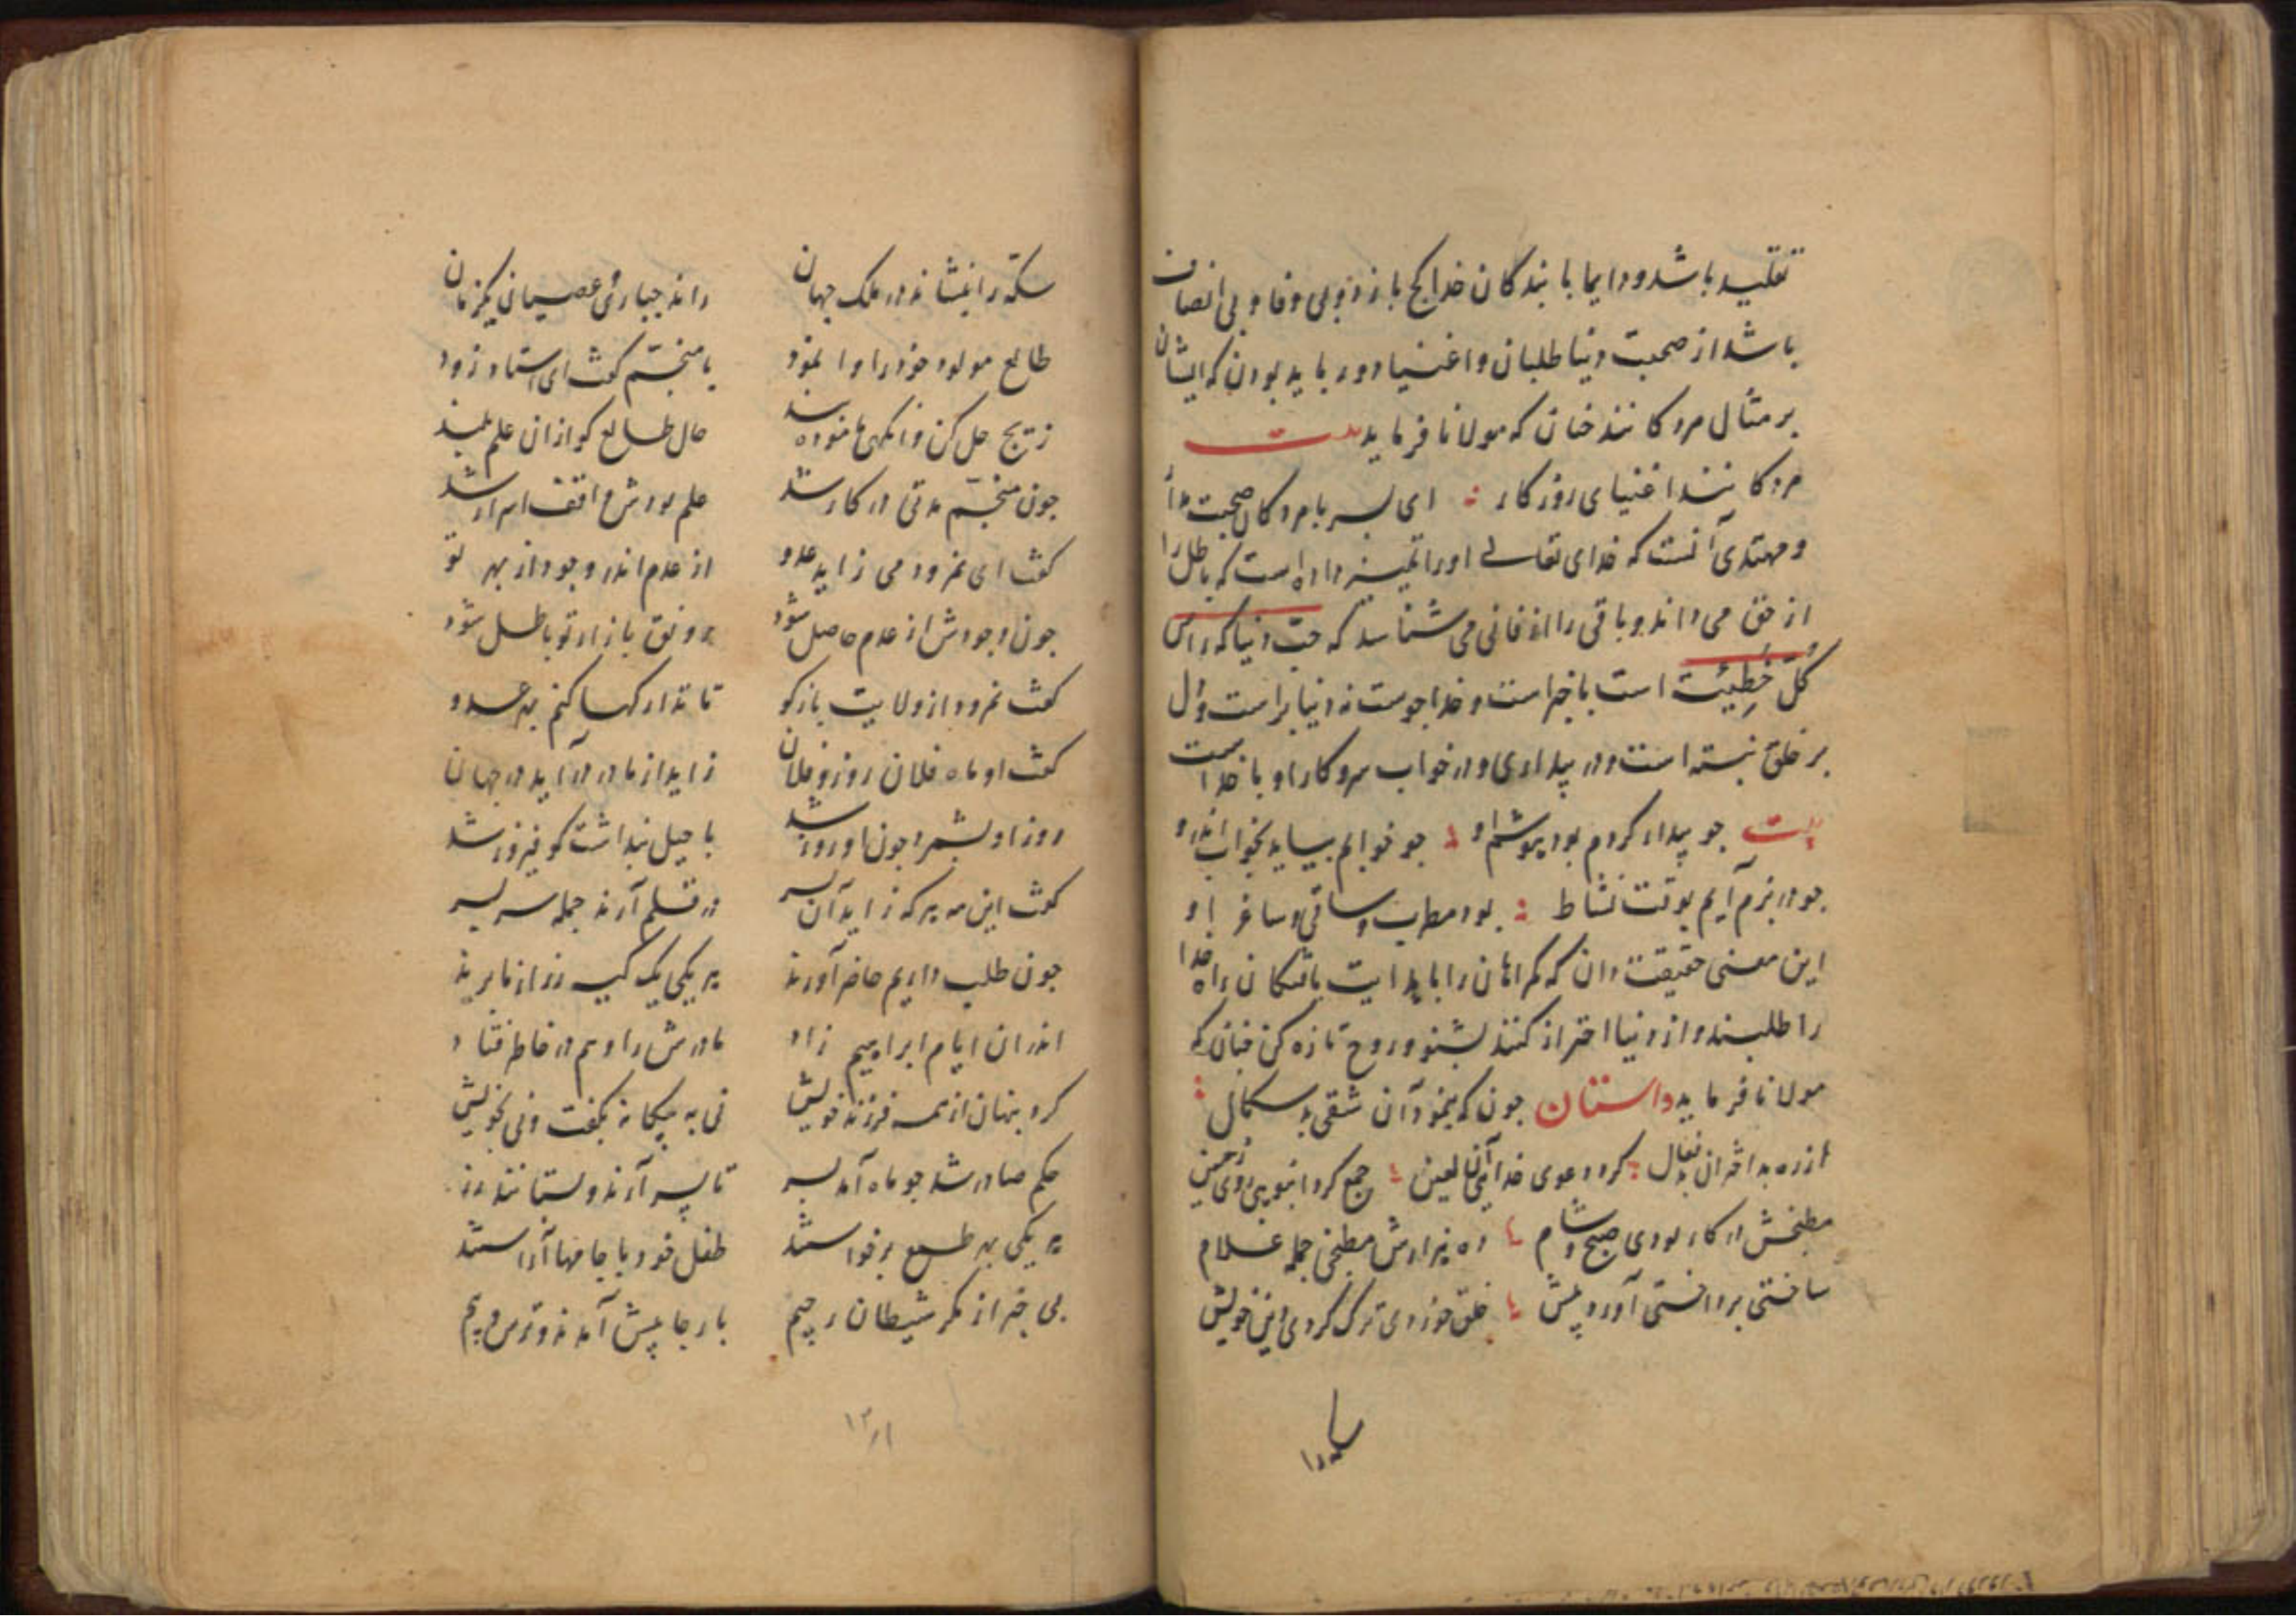 تقلید باشد و دایما با بندگان خدا کج باز و بی وفا و بی انصاف
باشد از صحبت دنیا طلبان و اغنیا دور باید بودن که ایشان
بر مثال مردکانند چنان که مولانا فرماید بیت
مردکانند اغنیای روزکار ای پسر با مردکان صحبت مدار
و مهتدی آنست که خدای تعالی او را تمییز داده است که باطل را
از حق می داند و باقی را از فانی می شناسد که حب دنیا که راس
کل خطیئت است باخبر است و خدا جوست نه دنیا پرست و دل
بر خلق نبسته است و در بیداری و در خواب سر و کار او با خداست
بیت جو بیدار کردم بود پوشم او جو خوابم بیاید بخواب اندرو
جو در بزم آیم بوقت نشاط بود مطرب و ساقی و ساغر او
این معنی حقیقت دان که کمراهان را باید هدایت یافتکان راه خدا
را طلبند و از دنیا احتراز کنند بشنو و روح تازه کن چنان که
مولانا فرماید داستان جون که نمرود آن شقی بد سکال
از ره بد اختران بد فعال کرد دعوی خدایی آن لعین جمع کرد انبوهی روی زمین
مطبخش در کار بودی صبح و شام ده هزارش مطبخی جمله غلام
ساختی پرداختی آورد پیش خلق خوردی ترک کردی دین خویش
سکه را
سکه را بنشاند در ملک جهان راند جباری و عصیانی یکزمان
طالع مولود خود را وا نمود با منجم کفت ای استاد زود
زیج حل کن وانکهی بنموده حال طالع کو ازان علم بلند
جون منجم مدتی در کار شد علم بودش واقف اسرار شد
کفت ای نمرود می زاید عدو از عدم اندر وجود از بهر تو
جون وجودش از عدم حاصل شود رونق بازار تو باطل شود
کفت نمرود از ولایت بازکو تا تدارکها کنم بهر عدو
کفت او ماه فلان روز و فلان زاید از مادر در آید در جهان
روز او بشمرد جون او رو شد با حیل پنداشت کو فیروز شد
کفت این مه هر که زاید آن پسر در قلم آرند جمله سر بسر
جون طلب داریم حاضر آورند هر یکی یک کیسه زر از ما برند
اندران ایام ابراهیم زاد مادرش را وهم در خاطر فتاد
کرد پنهان از همه فرزند خویش نی به بیکانه بکفت و نی بخویش
حکم صادر شد جو ماه آمد بسر تا پسر آرند و بستانند زر
هر یکی بهر طمع برخواستند طفل خود با جامها آراستند
بی خبر از مکر شیطان رجیم با رجا پیش آمدند و ترس و بیم